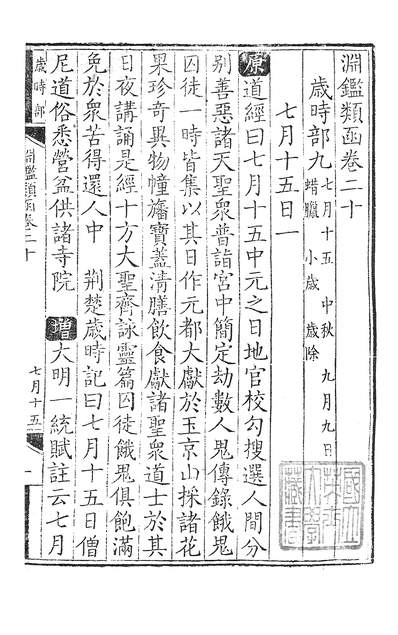 淵鑑類函卷二十
歲時部九 七月十五 中秋 九月九日
蜡臘 小歲 歲除
七月十五日一
原道經曰七月十五中元之日地官校勾搜選人間分
別善惡諸天聖衆普詣宮中簡定劫數人鬼傳錄餓鬼
囚徒一時皆集以其日作元都大獻於玉京山採諸花
果珍奇異物幢旛寶蓋清膳飲食獻諸聖衆道士於其
日夜講誦是經十方大聖齊詠靈篇囚徒餓鬼俱飽滿
免於衆苦得還人中 荆楚歲時記曰七月十五日僧
尼道俗悉營盆供諸寺院 增大明一統賦註云七月
歲時部
淵鑑類函卷二十
七月十五
一